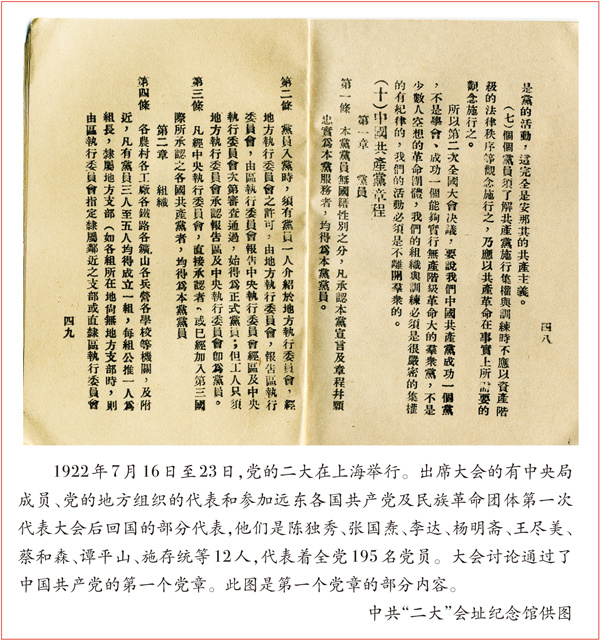 是黨的活動，這完全是安那其的共產主義。
（七）個個黨員須了解共產黨施行集權與訓練時不應以資產階
級的法律秩序等觀念施行之，乃應以共產革命在事實上所需要的
觀念施行之。
所以第二次全國大會決議，要說我們中國共產黨成功一個黨
，不是學會、成功一個能夠實行無產階級革命大的羣衆黨，不是
少數人空想的革命團體，我們的組織與訓練必須是很嚴密的集權
的有紀律的，我們的活動必須是不離開羣衆的。
（十）中國共產黨章程
第一章 黨員
第一條 本黨黨員無國籍性別之分，凡承認本黨宣言及章程並願
忠實爲本黨服務者，均得爲本黨黨員。
四八
第二條 黨員入黨時，須有黨員一人介紹於地方執行委員會，經
地方執行委員會之許可，由地方執行委員會，報告區執行
委員會，由區執行委員會報告中央執行委員會經區及中央
執行委員會次第審查通過，始得爲正式黨員；但工人只須
地方執行委員會承認報告區及中央執行委員會卽爲黨員。
第三條 凡經中央執行委員會，直接承認者、或已經加入第三國
際所承認之各國共產黨者，均得爲本黨黨員
第二章 組織
第四條 各農村各工廠各鐵路各鑛山各兵營各學校等機關，及附
近，凡有黨員三人至五人均得成立一組，每組公推一人爲
組長，隸屬地方支部（如各組所在地尙無地方支部時，則
由區執行委員會指定隸屬鄰近之支部或直隸區執行委員會
四九
1922年7月16日至23日，党的二大在上海举行。出席大会的有中央局
成员、党的地方组织的代表和参加远东各国共产党及民族革命团体第一次
代表大会后回国的部分代表，他们是陈独秀、张国焘、李达、杨明斋、王尽美、
蔡和森、谭平山、施存统等12人，代表着全党195名党员。大会讨论通过了
中国共产党的第一个党章。此图是第一个党章的部分内容。
中共“二大”会址纪念馆供图